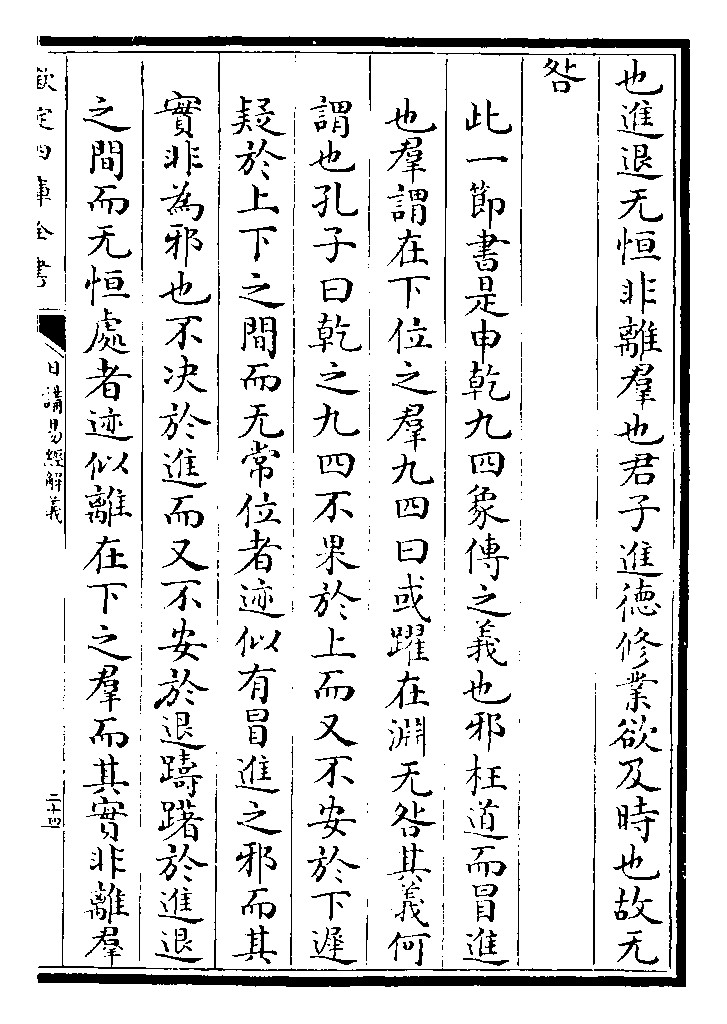 也進退无恒非離羣也君子進德修業欲及時也故无
咎
此一節書是申乾九四象傳之義也邪枉道而冒進
也羣謂在下位之羣九四曰或躍在淵无咎其義何
謂也孔子曰乾之九四不果於上而又不安於下遲
疑於上下之間而无常位者迹似有冒進之邪而其
實非為邪也不决於進而又不安於退躊躇於進退
之間而无恒處者迹似離在下之羣而其實非離羣
欽定四庫全書
日講易經解義
二十四